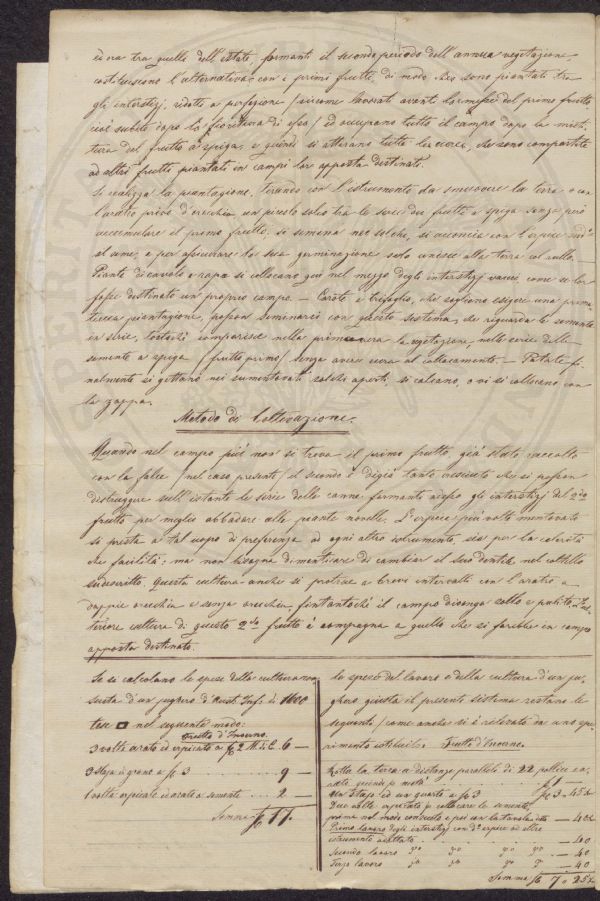 ed ora tra quelle dell'estate, formanti il secondo periodo dell'annua vegetazione,
costituiscono l'alternativa con i primi frutti di modo che sono piantati tra
gli interstizj, ridotti a perfezione / siccome lavorati avanti la messe del primo frutto
cioè subito dopo la fioritura di esso / ed occupano tutto il campo dopo la mieti-
tura del frutto a spiga, e quindi si alterano tutte le, che sono compartite
ad altro frutto piantati in campi lor apposta destinati.
Si realizza la piantagione, tirando con l'istrumento da smuovere la terra o con
l'aratro privo d'orecchia, un piccolo solco tra le serie dei frutti a spiga senza però
accumulare il primo frutto, si semina nel solche, si acconcia con l'erpice
al seme, e per assicurare la sua germinazione solo unisce alla terra col rullo.
Piante di cavolo e rapa si collocano qui nel mezzo degli interstizj vacui come se lor
fosse destinato un proprio campo. — Carote e trifoglio, che sogliono esigere una prima-
ticcia piantagione, possono seminarsi con questo sistema, che riguarda le semente
in serie, tostochè comparisce nella primavera la vegetazione, nelle serie delle
semente a spiga / frutto primo / senza avere cura al collocamento. — Patate fi-
nalmente si gettano nei summentovati solchi aperti, si calcano, o vi si collocano con
la zappa.
Metodo di Coltivazione.
Quando nel campo più non si trova il primo frutto, già stato raccolto
con la falce / nel caso presente / il secondo è digià tanto cresciuto che si possono
distruggere sull'istante le serie delle canne formanti adesso gli interstizj del 2do
frutto per meglio abbadare alle piante novelle. L'erpice più volte mentovato
si presta a tal uopo di preferenza ad ogni altro istrumento, sia per la celerità
che facilità: ma non bisogna dimenticare di cambiar il suo dente nel coltello
suddescritto. Questa cultura anche si protrae a brevi intervalli con l'aratro a
doppie orecchie e senza orecchie, fintantochè il campo divenga sollo e pulito. L'ul-
teriore cultura di questo 2do frutto è compagna a quello che si farebbe in campo
apposta destinato.
Se si calcolano le spese della cultura con-
sueta d'un jughero d'Aust. Inf. di 1600
tese □ nel seguente modo:
Frutto d'Inverno.
3 volte arato ed erpicato a f 2 M. di C. 6 —
3 staja di grano a f 3 . . . 9 —
1 volta erpicato ed arato a semente . . 2 —
Somma f 17.
le spese del lavoro e della cultura d'un ju-
ghero giusta il presente sistema restano le
seguenti / come anche si è rilevato da uno spe-
rimento istituito. Frutto d'Inverno.
Rotta la terra a distanze parallele di 22 pollici
metà . . f 1 —
Uno Stajo ed un quarto a f 3 . . f 3 . 45 x
Due volte erpicato p. collocare le semente,
prima nel modo consueto e poi con la tavola — 40 x
Primo lavoro degli interstizj con do erpice od altro
istrumento adattato . . . — 40
Secondo lavoro do do do — 40
Terzo lavoro do do do — 40
Somma f 7 . 25 x